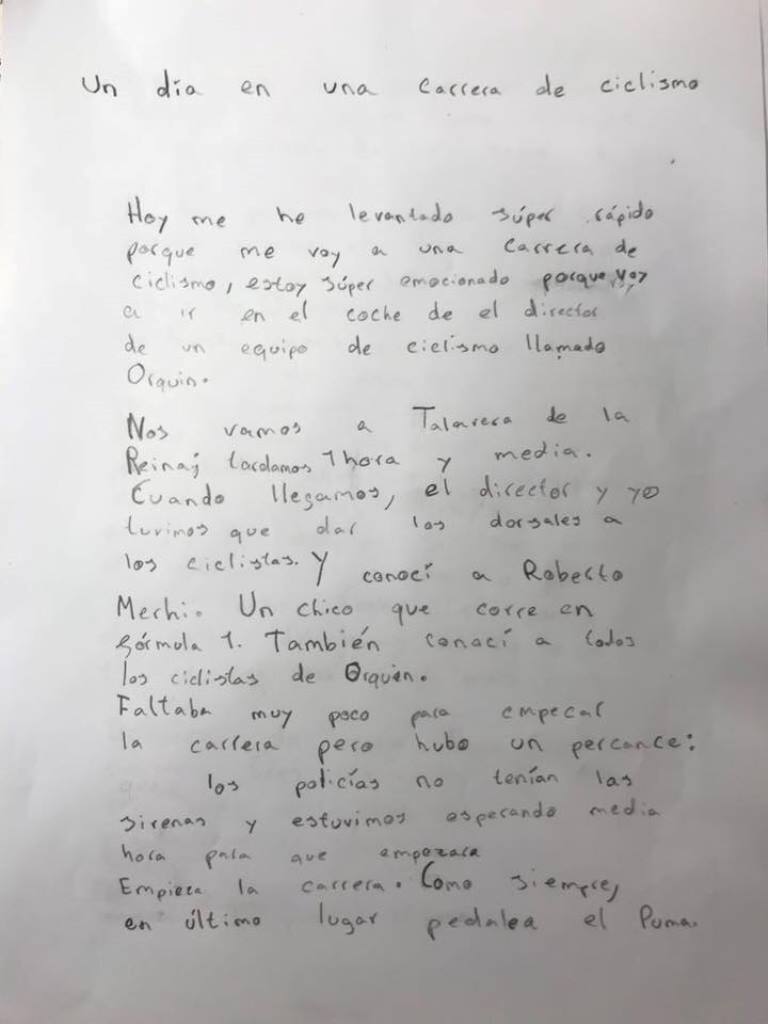 Un día en una carrera de ciclismo
Hoy me he levantado súper rápido
porque me voy a una carrera de
ciclismo, estoy súper emocionado porque voy
a ir en el coche de el director
de un equipo de ciclismo llamado
Orquin.
Nos vamos a Talavera de la
Reina; tardamos 1 hora y media.
Cuando llegamos, el director y yo
tuvimos que dar los dorsales a
los ciclistas. Y conocí a Roberto
Merhi. Un chico que corre en
fórmula 1. También conocí a todos
los ciclistas de Orquin.
Faltaba muy poco para empecar
la carrera pero hubo un percance:
los policías no tenían las
sirenas y estuvimos esperando media
hora para que empezara
Empieza la carrera. Como siempre,
en último lugar pedalea el Puma.